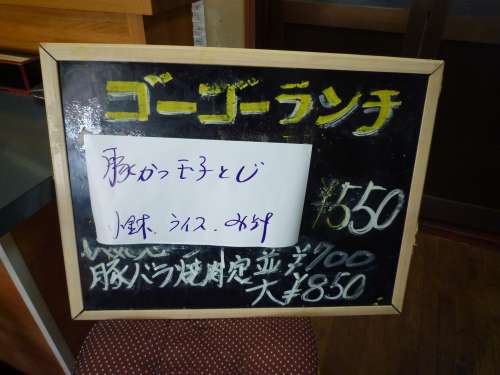 ゴーゴーランチ
豚かつ玉子とじ
小鉢、ライス、みそ汁
¥550
豚バラ焼肉定 並 ¥700
大 ¥850